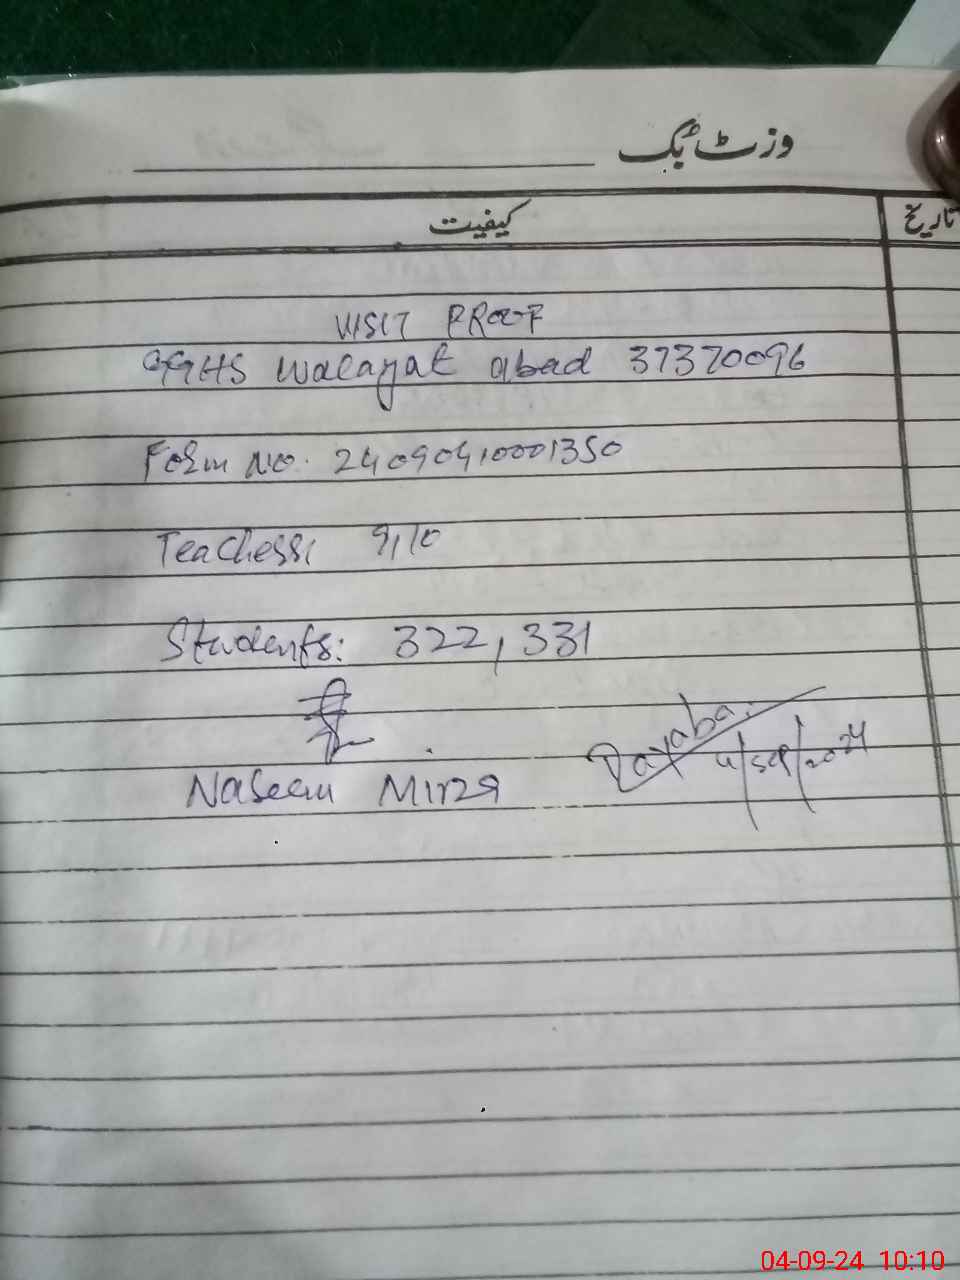 وزٹ بک
کیفیت
تاریخ
VISIT PROOF
GGHS Walayat abad 37370096
Form No. 24090410001350
Teachers: 9,10
Students: 322, 331
Naseem Mirza
4/sep/2024
04-09-24 10:10